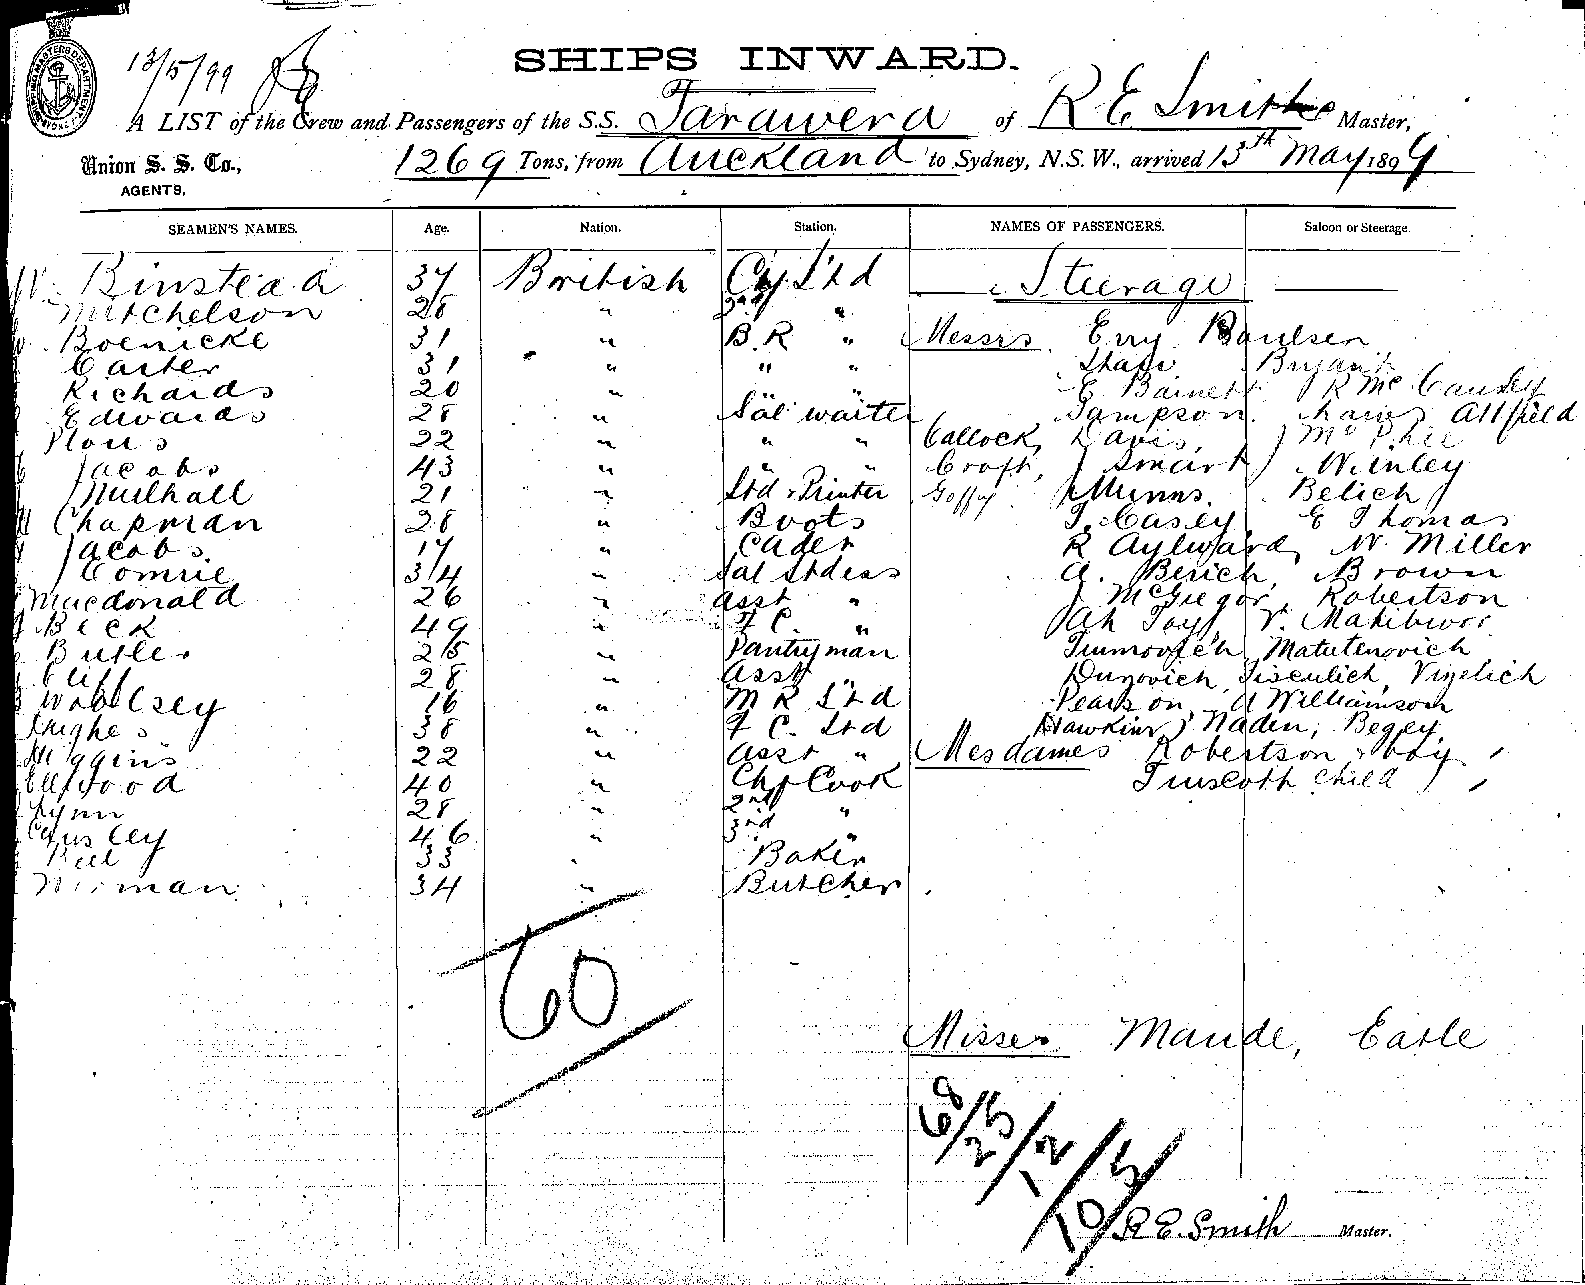 13/5/99
SHIPS INWARD.
A LIST of the Crew and Passengers of the S.S. Tarawera of R E Smith Master,
Union S. S. Co., AGENTS,
1269 Tons, from Auckland to Sydney, N.S.W., arrived 13th May 1899
SEAMEN'S NAMES. Age. Nation. Station. NAMES OF PASSENGERS. Saloon or Steerage.
Binstead 37 British Ch Std Steerage
Mitchelson 28 " 2nd "
Boenicke 31 " B.R " Messrs Erry Paulsen
Carter 31 " " " Bryant
Richards 20 " E Barnett R Mc Causley
Edwards 28 " Sal waiter Sampson Attfield
22 " " " Callock, Davis, J McPhee
Jacobs 43 " " " Croft, J Smart, Winley
Mulhall 21 " Std & Printer Munns, Belich
Chapman 28 " Boots T. Casey E Thomas
Jacobs 17 " Cadet R Aylward, W. Miller
Comrie 34 " Sal Stdess A. Berich, Brown
Macdonald 26 " Asst " J McGregor, Robertson
Beck 49 " F C. " Ah Toy, V.
Butler 25 " Pantryman Matutenovich
28 " Asst " Vizelich
Woollsey 16 " M R Std Pearson, A Williamson
Hughes 38 " F C. Std Hawkins, Naden, Begey.
Higgins 22 " Asst " Mesdames Robertson & boy
Ellwood 40 " Chf Cook Truscott child
Lynn 28 " 2nd "
46 " 3rd "
33 Baker
34 " Butcher
60
Misses Maude, Earle
68/25/12/10/5
R E. Smith Master.